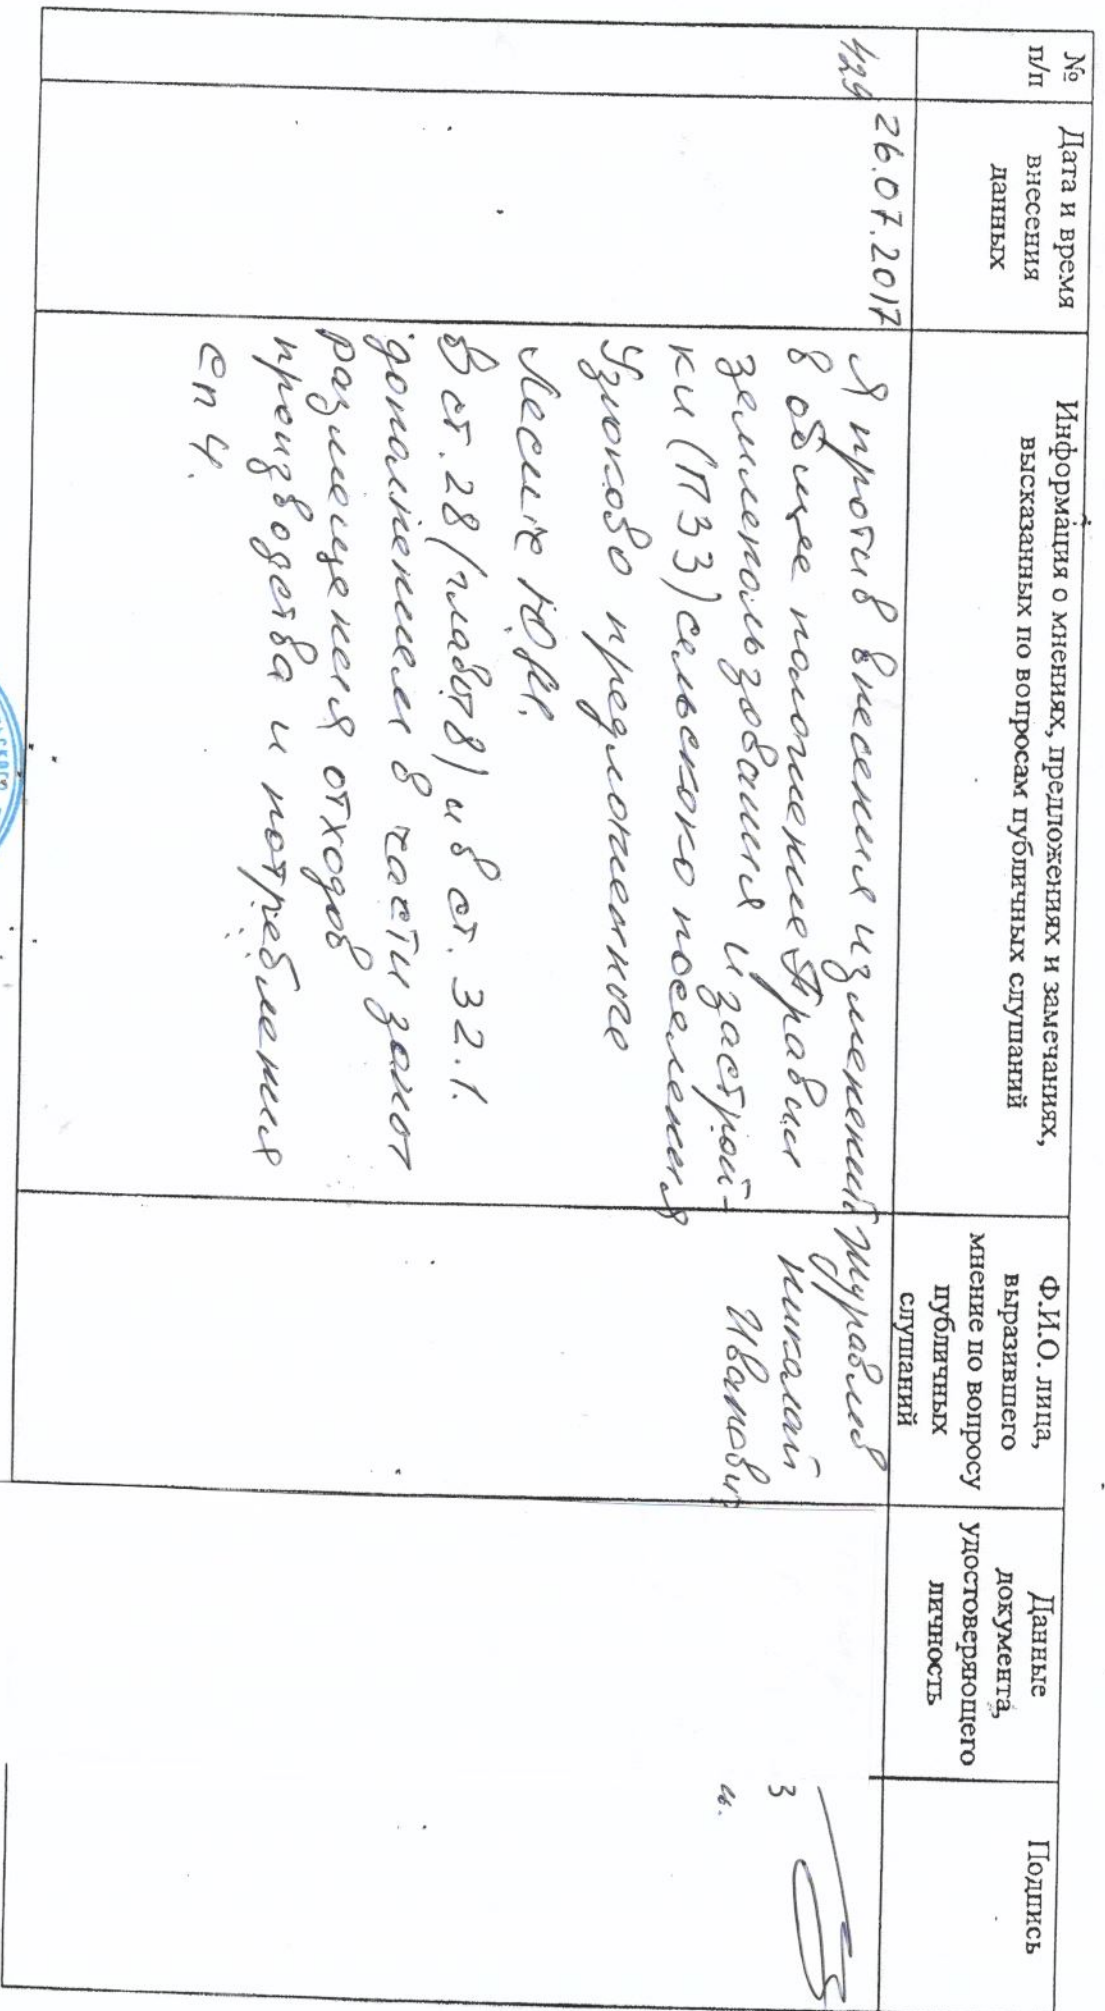 №
п/п
Дата и время
внесения
данных
Информация о мнениях, предложениях и замечаниях,
высказанных по вопросам публичных слушаний
Ф.И.О. лица,
выразившего
мнение по вопросу
публичных
слушаний
Данные
документа,
удостоверяющего
личность
Подпись
429
26.07.2017
Я против внесения изменений
в общее положение Правил
землепользования и застрой-
ки (ПЗЗ) сельского поселения
Узюково предложенное
Лесине Ю.М.
В ст. 28 (глава 8) и в ст. 32.1.
дополнением в части зоны
размещения отходов
производства и потребления
Сп 4.
Журавлев
Николай
Иванович
З